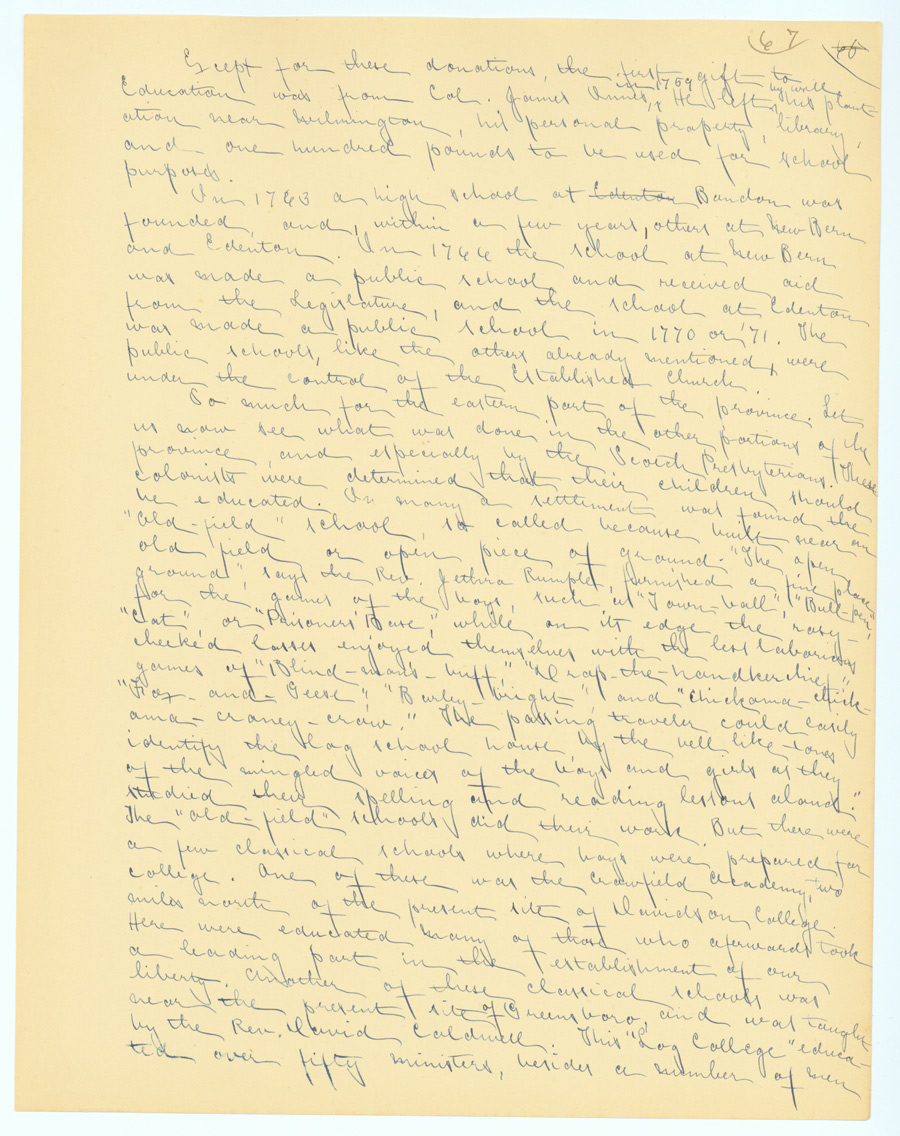 67 66
Except for these donations, the first gift to
Education was from Col. James Innes, in 1759. He left by will his plant-
ation near Wilmington, his personal property, library,
and one hundred pounds to be used for school
purposes.
In 1763 a high school at Edenton Bandon was
founded, and, within a few years, others at New Bern
and Edenton. In 1766 the school at New Bern
was made a public school and received aid
from the Legislature, and the school at Edenton
was made a public school in 1770 or '71. The
public schools, like the others already mentioned, were
under the control of the Established Church.
So much for the eastern part of the province. Let
us now see what was done in the other portions of the
province, and especially by the Scotch Presbyterians. These
colonists were determined that their children should
be educated. In many a settlement was found the
"old-field" school, so called because built near an
old field or open piece of ground. "The open
ground", says the Rev. Jethro Rumple, "furnished a fine place
for the games of the boys, such as "Town-ball", "Bull-pen",
"Cat" or "Prisoners' Base," while on its edge the rosy-
cheeked lasses enjoyed themselves with the less laborious
games of "Blind-man's-buff," "Drop-the-handkerchief,"
"Fox-and-Geese", "Barley-bright" and "Chickama-chick-
ama-craney-crow." The passing traveler could easily
identify the log school house by the bell like tones
of the mingled voices of the boys and girls as they
studied their spelling and reading lessons aloud."
The "old-field" schools did their work. But there were
a few classical schools where boys were prepared for
college. One of these was the Crowfield Academy, two
miles north of the present site of Davidson College.
Here were educated many of those who afterwards took
a leading part in the establishment of our
liberty. Another of these classical schools was
near the present site of Greensboro, and was taught
by the Rev. David Caldwell. This "Log College" educa-
ted over fifty ministers, besides a number of men